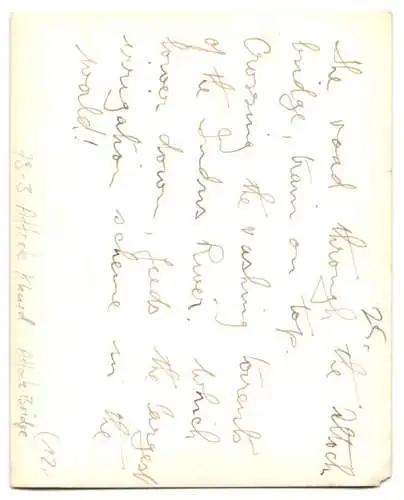 25,
The road through the Attock
bridge, train on top.
Crossing the rushing torrents
of the Indus River, which
lower down, feeds the largest
irrigation scheme in the
world!
73-3 Attock Khurd Attock Bridge
(12,